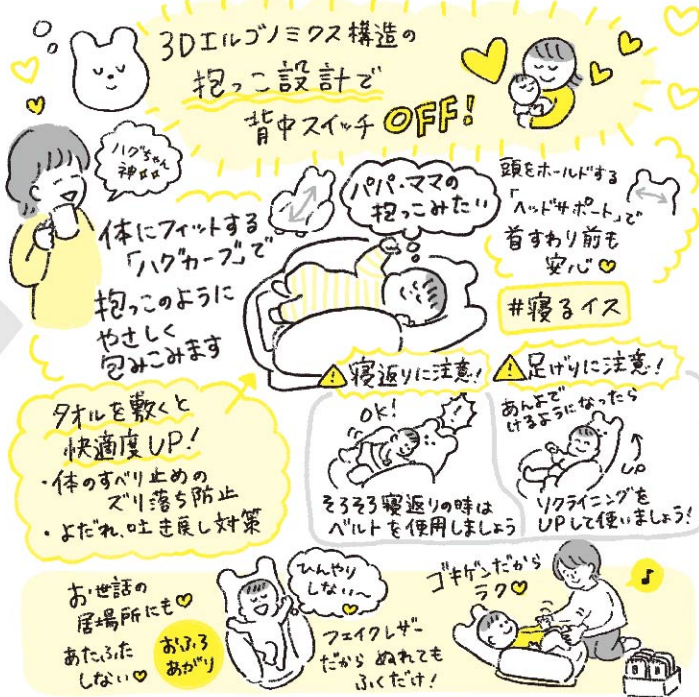 3Dエルゴノミクス構造の
抱っこ設計で
背中スイッチOFF!
ハグちゃん
神☆☆
体にフィットする
「ハグカーブ」で
抱っこのように
やさしく
包みこみます
パパ・ママの
抱っこみたい
頭をホールドする
「ヘッドサポート」で
首すわり前も
安心♡
#寝るイス
タオルを敷くと
快適度UP!
・体のすべり止めの
ズリ落ち防止
・よだれ、吐き戻し対策
寝返りに注意!
OK!
そろそろ寝返りの時は
ベルトを使用しましょう
足げりに注意!
あんよで
けるようになったら
UP
リクライニングを
UPして使いましょう!
お世話の
居場所にも♡
あたふた
しない♡
おふろ
あがり
ひんやり
しない〜
フェイクレザー
だから ぬれても
ふくだけ!
ゴキゲンだから
ラク♡